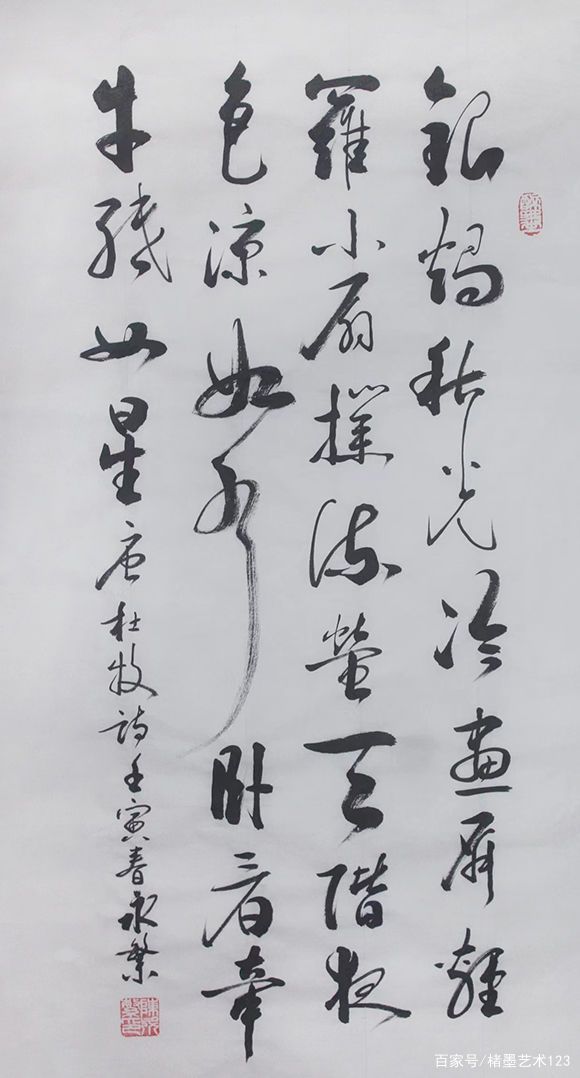 銀燭秋光冷畫屏輕
羅小扇撲流螢天階夜
色涼如水卧看牽
牛織女星唐杜牧詩壬寅春永繁
百家号/楮墨艺术123